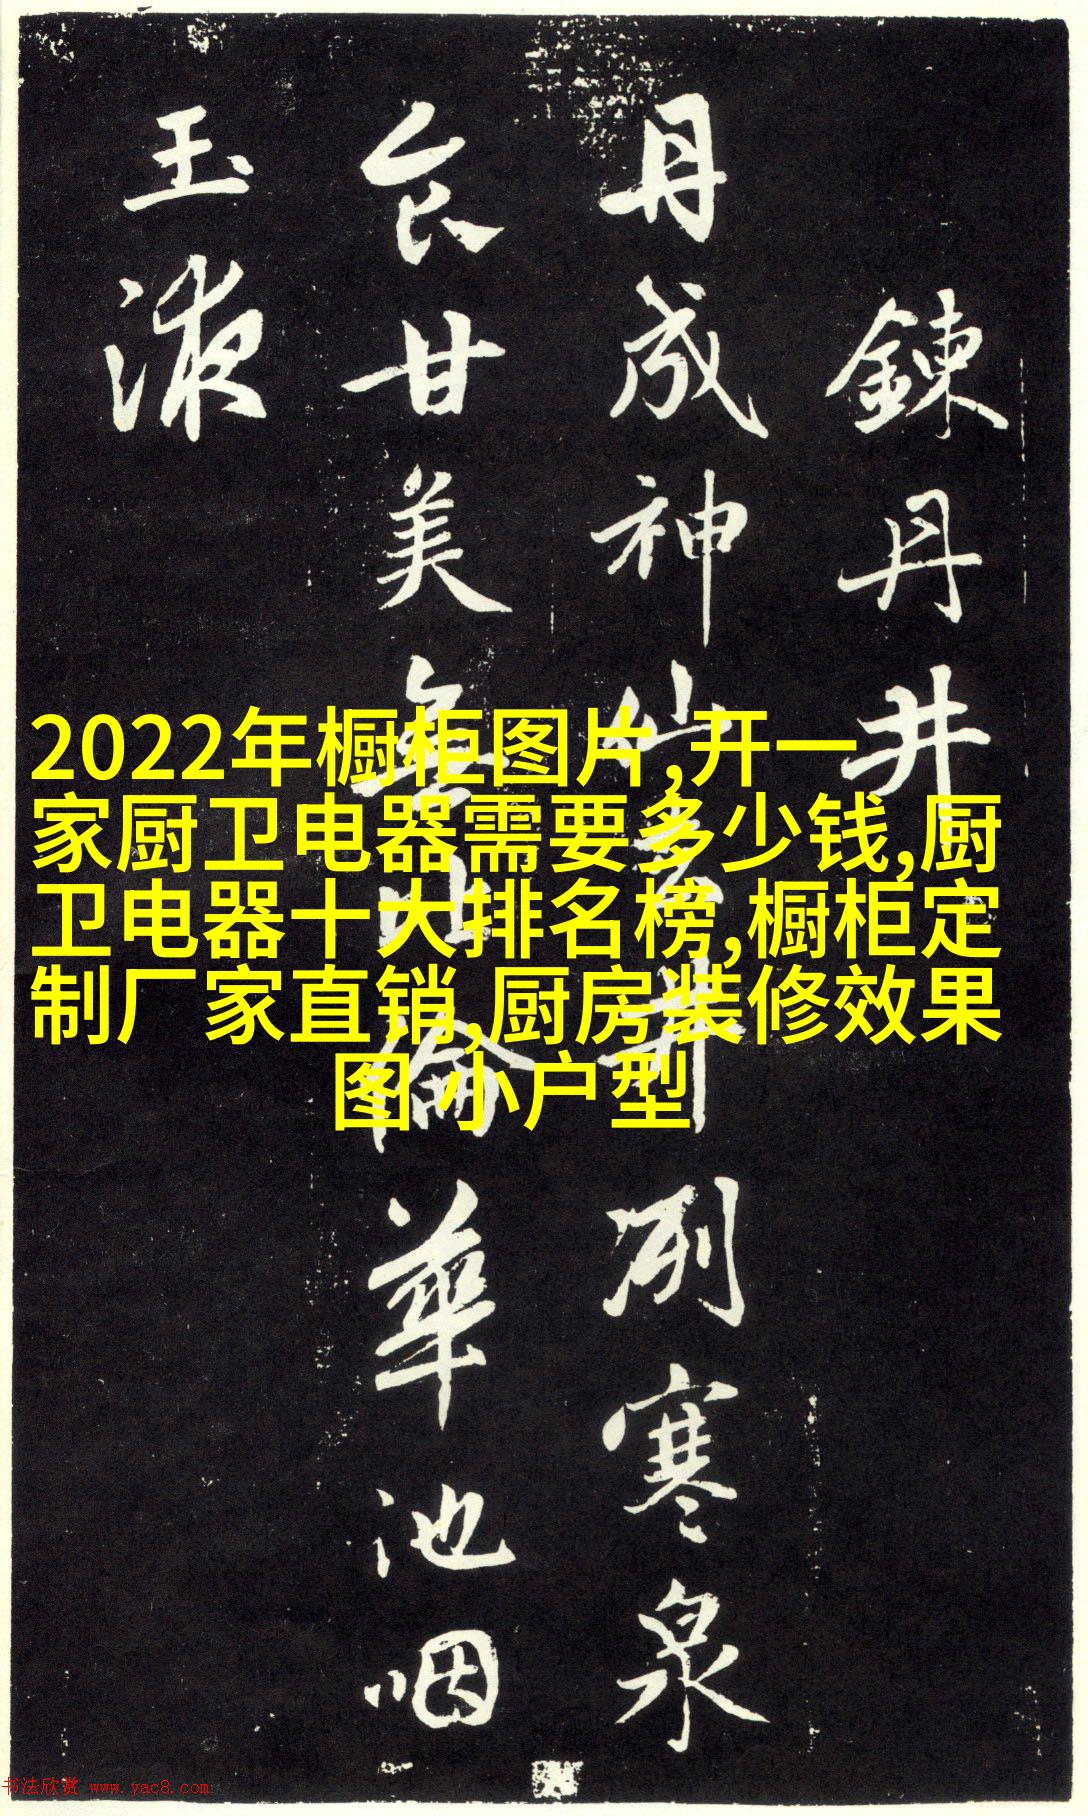 鍊丹井
丹成神仙去井冽寒泉
食甘美無比倫華池咽
玉液
2022年橱柜图片,开一
家厨卫电器需要多少钱,厨
卫电器十大排名榜,橱柜定
制厂家直销,厨房装修效果
图 小户型
书法欣赏 www.yac8.com